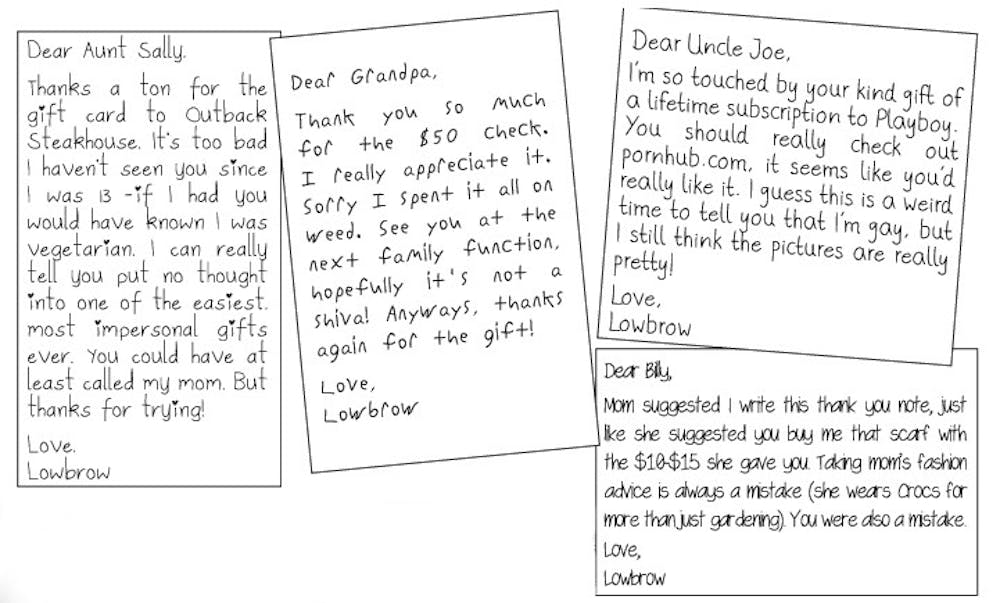 Dear Aunt Sally,
Thanks a ton for the
gift card to Outback
Steakhouse. It's too bad
I haven't seen you since
I was 13 -if I had you
would have known I was
vegetarian. I can really
tell you put no thought
into one of the easiest,
most impersonal gifts
ever. You could have at
least called my mom. But
thanks for trying!
Love,
Lowbrow
Dear Grandpa,
Thank you so much
for the $50 check.
I really appreciate it.
Sorry I spent it all on
weed. See you at the
next family function,
hopefully it's not a
shiva! Anyways, thanks
again for the gift!
Love,
Lowbrow
Dear Uncle Joe,
I'm so touched by your kind gift of
a lifetime subscription to Playboy.
You should really check out
pornhub.com, it seems like you'd
really like it. I guess this is a weird
time to tell you that I'm gay, but
I still think the pictures are really
pretty!
Love,
Lowbrow
Dear Billy,
Mom suggested I write this thank you note, just
like she suggested you buy me that scarf with
the $10-$15 she gave you. Taking mom's fashion
advice is always a mistake (she wears Crocs for
more than just gardening). You were also a mistake.
Love,
Lowbrow